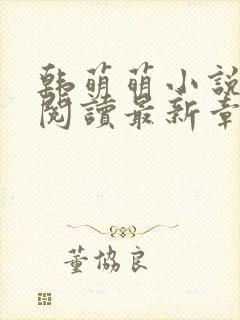 韩萌萌小説
閱讀最新章
董協良